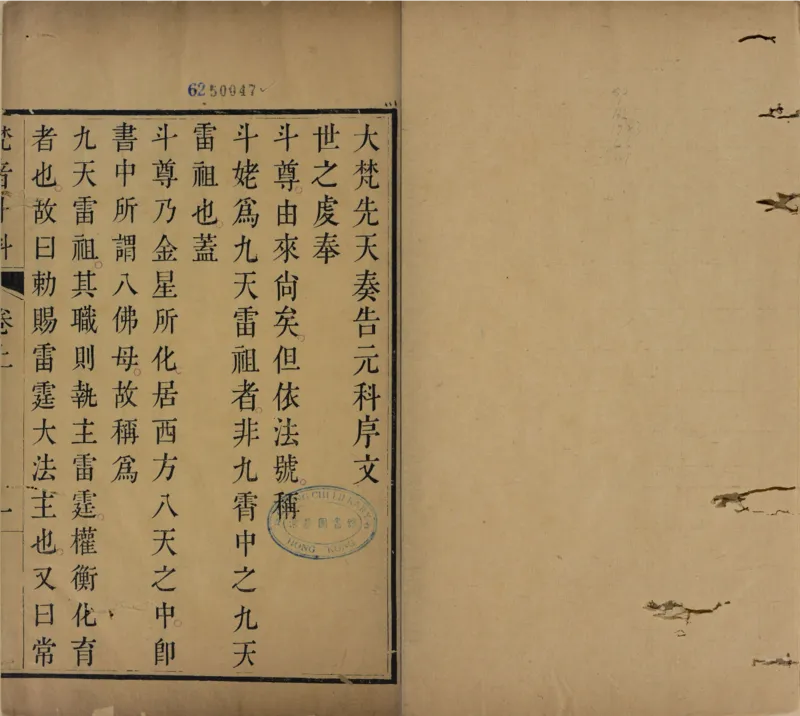 6250947
大梵先天奏告元科序文
世之虔奉
斗尊。由來尙矣。但依法號。稱
斗姥爲九天雷祖者。非九霄中之九天
雷祖也。蓋
斗尊乃金星所化。居西方八天之中。卽
書中所謂八佛母。故稱爲
九天雷祖。其職則執主雷霆。權衡化育
者也。故曰勅賜雷霆大法主也。又曰常
梵音斗科
卷上
一
HONG KONG